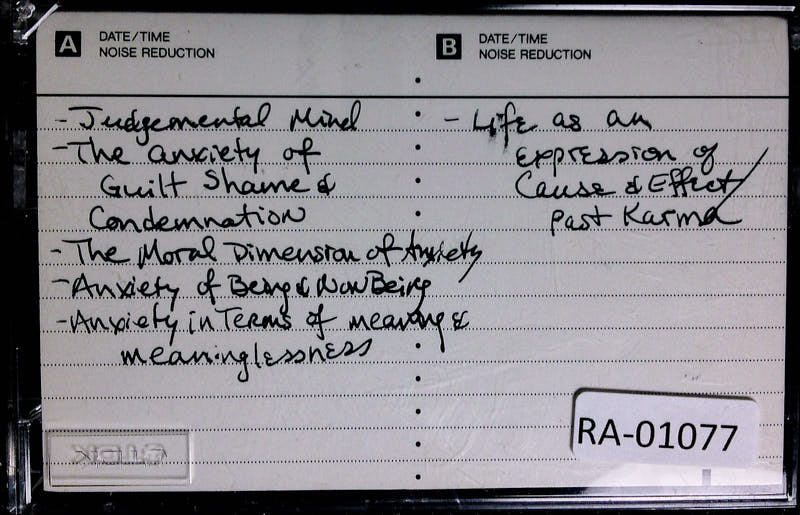 A DATE/TIME
NOISE REDUCTION
- Judgemental Mind
- The anxiety of
Guilt Shame &
Condemnation
- The Moral Dimension of Anxiety
- Anxiety of Being & NonBeing
- Anxiety in Terms of meaning &
meaninglessness
B DATE/TIME
NOISE REDUCTION
- Life as an
expression of
Cause & Effect/
past Karma
RA-01077
TDK